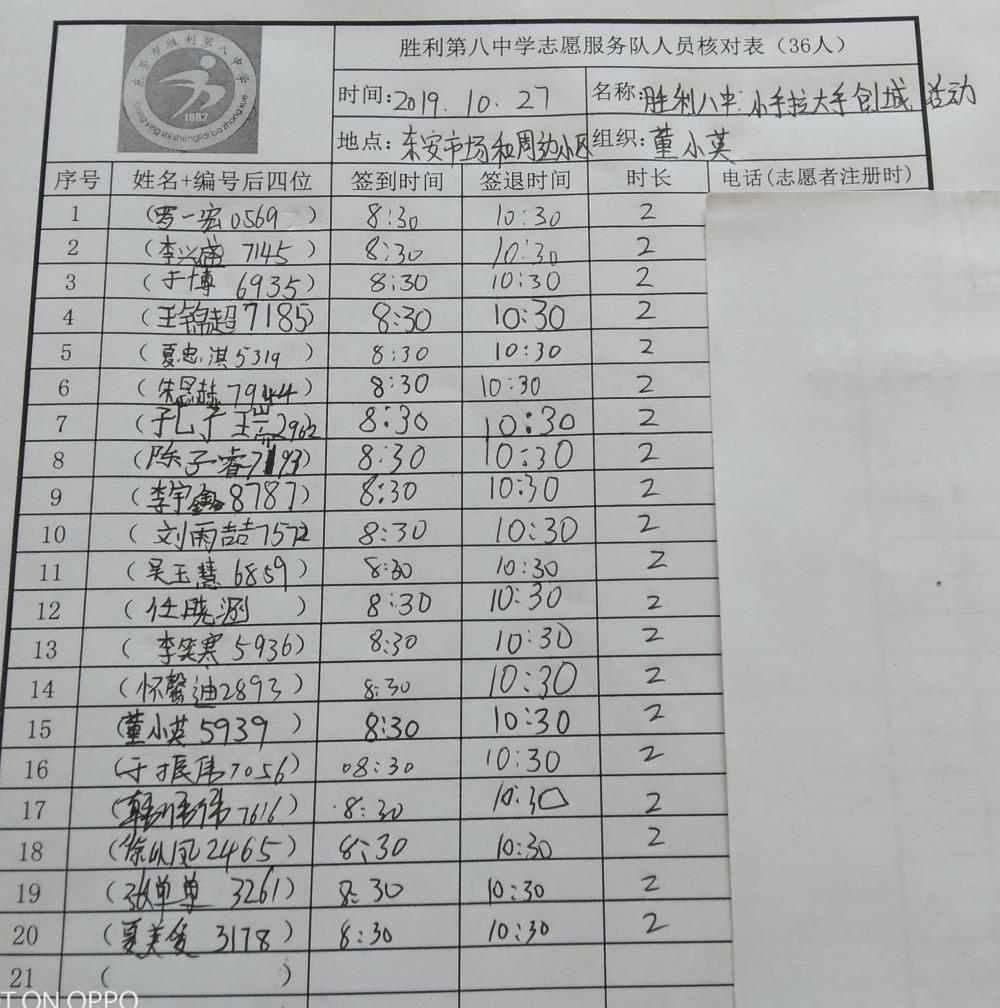 东营市胜利第八中学
dong ying shi sheng li di ba zhong xue
1982
胜利第八中学志愿服务队人员核对表（36人）
时间: 2019.10.27 名称: 胜利八中:小手拉大手创城活动
地点: 东安市场和周边小区 组织: 董小英
序号 姓名+编号后四位 签到时间 签退时间 时长 电话(志愿者注册时)
1 (罗一宏0569) 8:30 10:30 2
2 (李兴 7145) 8:30 10:30 2
3 (于博 6935) 8:30 10:30 2
4 (王锦超7185) 8:30 10:30 2
5 (夏忠淇5319) 8:30 10:30 2
6 (朱 7944) 8:30 10:30 2
7 ( 2962 8:30 10:30 2
8 (陈子睿7193) 8:30 10:30 2
9 (李宇鑫8787) 8:30 10:30 2
10 (刘雨喆7572 8:30 10:30 2
11 (吴玉慧 6859) 8:30 10:30 2
12 (任晓涵 ) 8:30 10:30 2
13 (李笑寒 5936) 8:30 10:30 2
14 (怀馨迪2893) 8:30 10:30 2
15 (董小英5939) 8:30 10:30 2
16 (于振伟7056) 08:30 10:30 2
17 (韩伟伟7616) 8:30 10:30 2
18 (徐 凤2465) 8:30 10:30 2
19 (张单单 3261) 8:30 10:30 2
20 (夏美俊 3178) 8:30 10:30 2
21 ( )
T ON OPPO